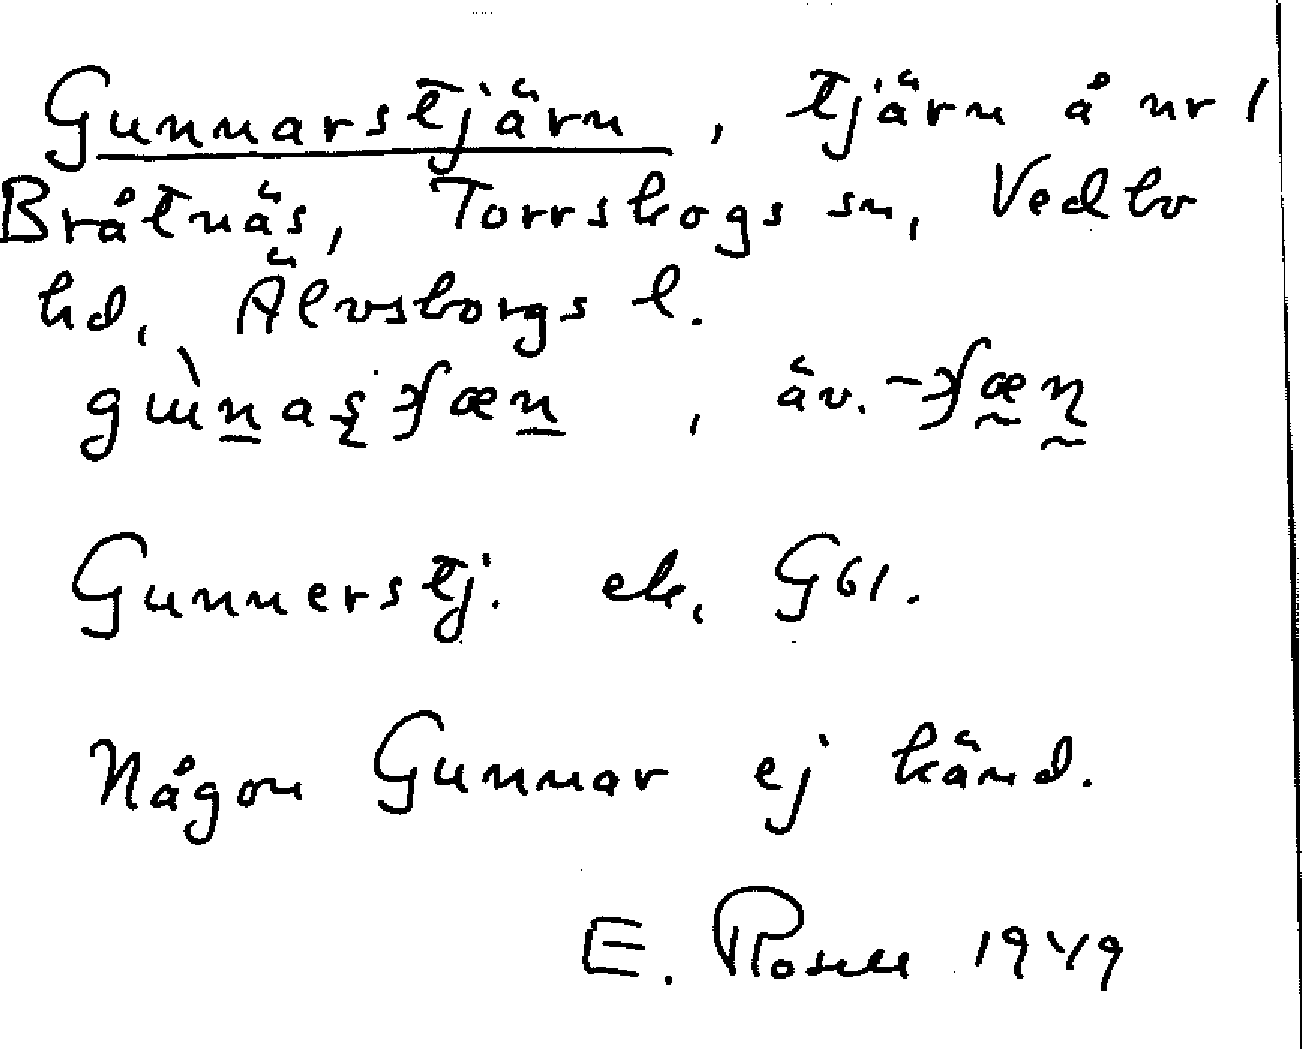 Gunnarstjärn, tjärn å nr 1
Bråtnäs, Torrskogs sn, Vedbo
hd, Älvsborgs l.
, äv.
Gunnerstj. ek, G61.
Någon Gunnar ej känd.
E. Rosell 1949